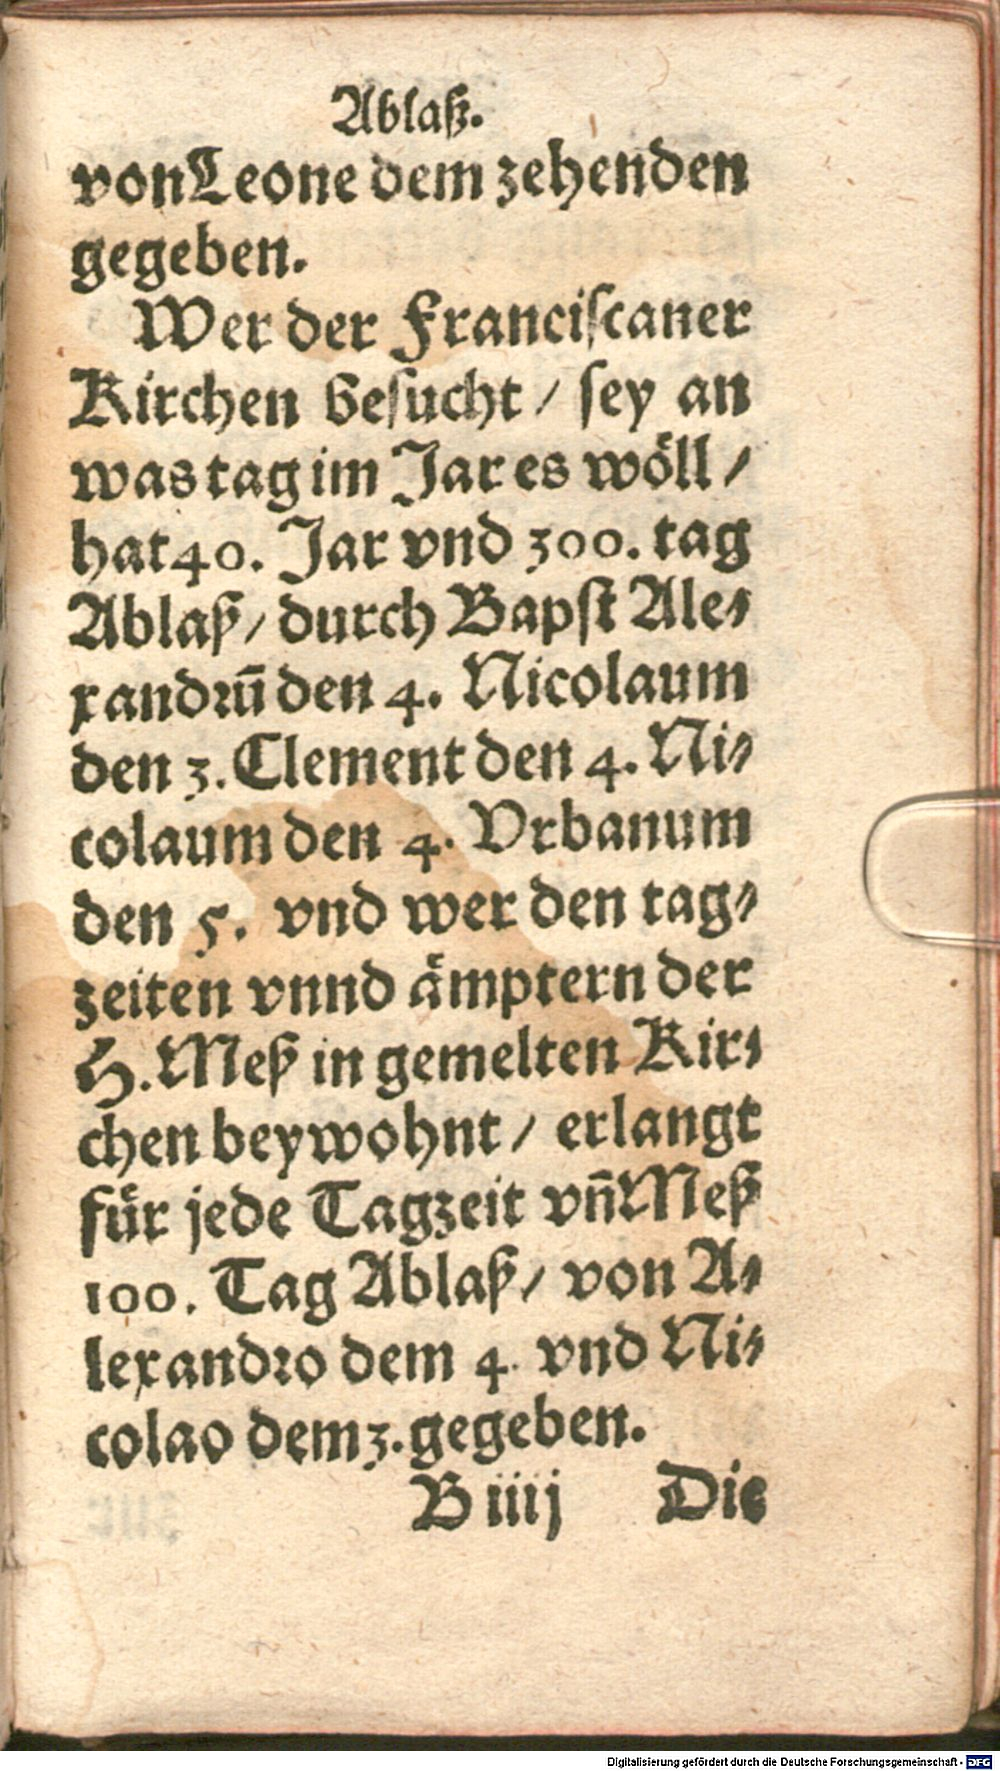 Ablaß.
von Leone dem zehenden
gegeben.
Wer der Franciſcaner
Kirchen beſucht / ſey an
was tag im Jar es wöll /
hat 40. Jar vnd 300. tag
Ablaß / durch Bapſt Ale⸗
xandrũ den 4. Nicolaum
den 3. Clement den 4. Ni⸗
colaum den 4. Vrbanum
den 5. vnd wer den tag⸗
zeiten vnnd aͤmptern der
H. Meß in gemelten Kir⸗
chen beywohnt / erlangt
fuͤr jede Tagzeit vn̄ Meß
100. Tag Ablaß / von A⸗
lexandro dem 4. vnd Ni⸗
colao dem 3. gegeben.
B iiij Die
Digitalisierung gefördert durch die Deutsche Forschungsgemeinschaft - DFG